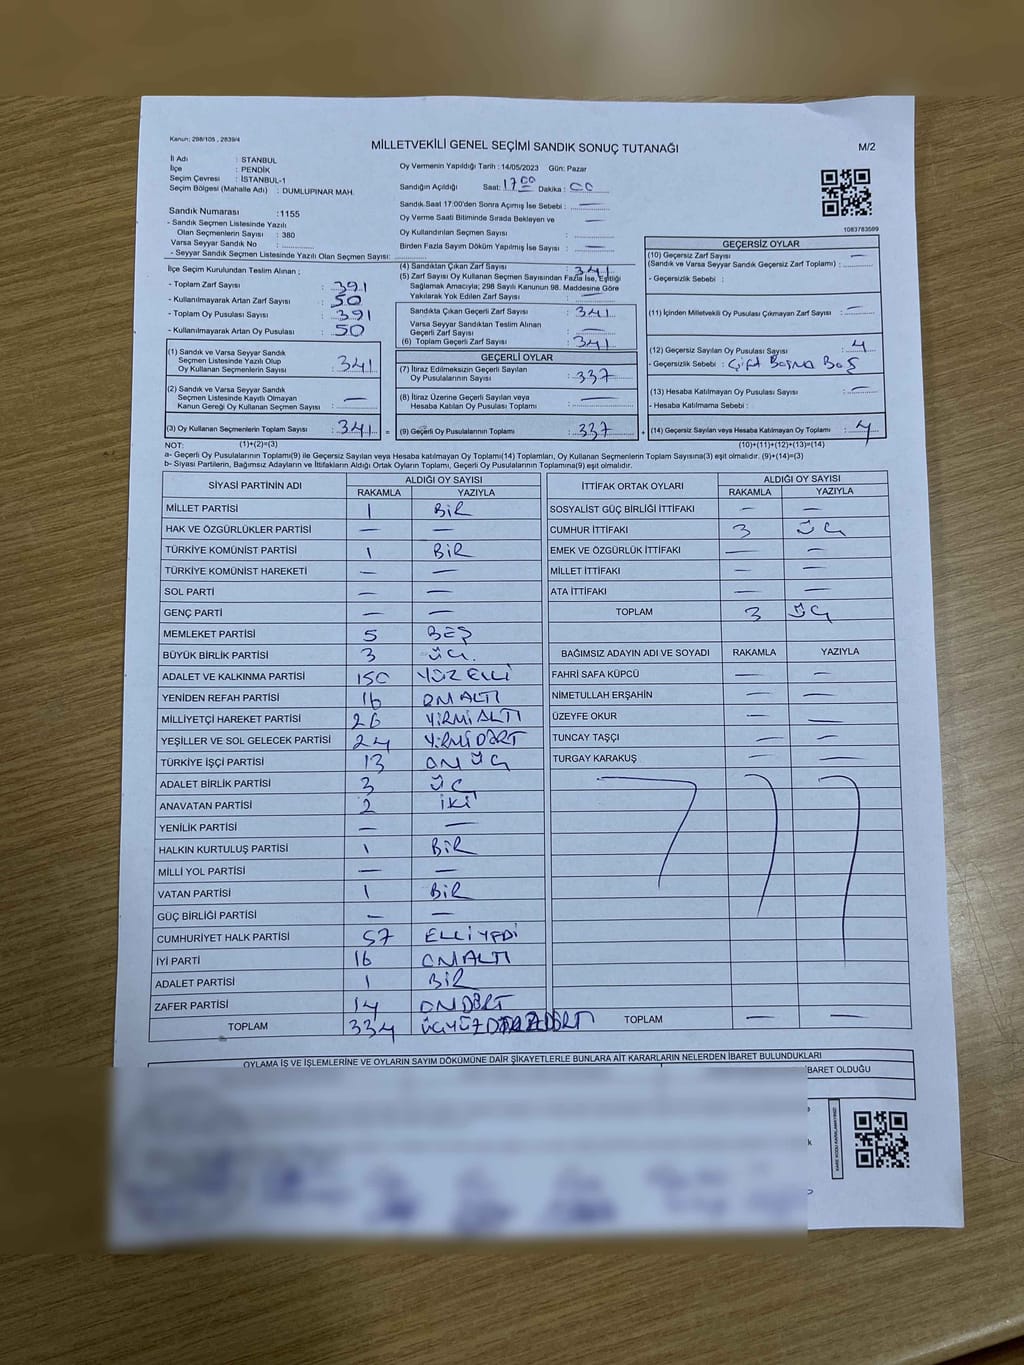 Kanun: 298/105 , 2839/4
MİLLETVEKİLİ GENEL SEÇİMİ SANDIK SONUÇ TUTANAĞI
M/2
İl Adı : STANBUL
İlçe : PENDİK
Seçim Çevresi : İSTANBUL-1
Seçim Bölgesi (Mahalle Adı) : DUMLUPINAR MAH.
Oy Vermenin Yapıldığı Tarih : 14/05/2023 Gün: Pazar
Sandığın Açıldığı Saat: 17:00 Dakika : 00
Sandık Saat 17:00'den Sonra Açımış İse Sebebi : —
Oy Verme Saati Bitiminde Sırada Bekleyen ve
Oy Kullandırılan Seçmen Sayısı : —
Birden Fazla Sayım Döküm Yapılmış İse Sayısı : —
1083783599
Sandık Numarası : 1155
- Sandık Seçmen Listesinde Yazılı
Olan Seçmenlerin Sayısı : 380
Varsa Seyyar Sandık No :
- Seyyar Sandık Seçmen Listesinde Yazılı Olan Seçmen Sayısı:
İlçe Seçim Kurulundan Teslim Alınan ;
- Toplam Zarf Sayısı : 391
- Kullanılmayarak Artan Zarf Sayısı : 50
- Toplam Oy Pusulası Sayısı : 391
- Kullanılmayarak Artan Oy Pusulası : 50
(1) Sandık ve Varsa Seyyar Sandık
Seçmen Listesinde Yazılı Olup
Oy Kullanan Seçmenlerin Sayısı : 341
(2) Sandık ve Varsa Seyyar Sandık
Seçmen Listesinde Kayıtlı Olmayan
Kanun Gereği Oy Kullanan Seçmen Sayısı : —
(3) Oy Kullanan Seçmenlerin Toplam Sayısı : 341 =
(4) Sandıktan Çıkan Zarf Sayısı : 341
(5) Zarf Sayısı Oy Kullanan Seçmen Sayısından Fazla İse, Eşitliği
Sağlamak Amacıyla; 298 Sayılı Kanunun 98. Maddesine Göre
Yakılarak Yok Edilen Zarf Sayısı : —
Sandıkta Çıkan Geçerli Zarf Sayısı : 341
Varsa Seyyar Sandıktan Teslim Alınan
Geçerli Zarf Sayısı : —
(6) Toplam Geçerli Zarf Sayısı : 341
GEÇERLİ OYLAR
(7) İtiraz Edilmeksizin Geçerli Sayılan
Oy Pusulalarının Sayısı : 337
(8) İtiraz Üzerine Geçerli Sayılan veya
Hesaba Katılan Oy Pusulası Toplamı : —
(9) Geçerli Oy Pusulalarının Toplamı : 337 +
GEÇERSİZ OYLAR
(10) Geçersiz Zarf Sayısı : —
(Sandık ve Varsa Seyyar Sandık Geçersiz Zarf Toplamı)
- Geçersizlik Sebebi :
(11) İçinden Milletvekili Oy Pusulası Çıkmayan Zarf Sayısı : —
(12) Geçersiz Sayılan Oy Pusulası Sayısı : 4
- Geçersizlik Sebebi : Çift Basma Boş
(13) Hesaba Katılmayan Oy Pusulası Sayısı : —
- Hesaba Katılmama Sebebi :
(14) Geçersiz Sayılan veya Hesaba Katılmayan Oy Toplamı : 4
NOT: (1)+(2)=(3) (10)+(11)+(12)+(13)=(14)
a- Geçerli Oy Pusulalarının Toplamı(9) ile Geçersiz Sayılan veya Hesaba katılmayan Oy Toplamı(14) Toplamları, Oy Kullanan Seçmenlerin Toplam Sayısına(3) eşit olmalıdır. (9)+(14)=(3)
b- Siyasi Partilerin, Bağımsız Adayların ve İttifakların Aldığı Ortak Oyların Toplamı, Geçerli Oy Pusulalarının Toplamına(9) eşit olmalıdır.
SİYASİ PARTİNİN ADI ALDIĞI OY SAYISI
RAKAMLA YAZIYLA
MİLLET PARTİSİ 1 BİR
HAK VE ÖZGÜRLÜKLER PARTİSİ — —
TÜRKİYE KOMÜNİST PARTİSİ 1 BİR
TÜRKİYE KOMÜNİST HAREKETİ — —
SOL PARTİ — —
GENÇ PARTİ — —
MEMLEKET PARTİSİ 5 BEŞ
BÜYÜK BİRLİK PARTİSİ 3 ÜÇ.
ADALET VE KALKINMA PARTİSİ 150 YÜZ ELLİ
YENİDEN REFAH PARTİSİ 16 ONALTI
MİLLİYETÇİ HAREKET PARTİSİ 26 YİRMİ ALTI
YEŞİLLER VE SOL GELECEK PARTİSİ 24 YİRMİDÖRT
TÜRKİYE İŞÇİ PARTİSİ 13 ON ÜÇ
ADALET BİRLİK PARTİSİ 3 ÜÇ
ANAVATAN PARTİSİ 2 İKİ
YENİLİK PARTİSİ — —
HALKIN KURTULUŞ PARTİSİ 1 BİR
MİLLİ YOL PARTİSİ — —
VATAN PARTİSİ 1 BİR
GÜÇ BİRLİĞİ PARTİSİ — —
CUMHURİYET HALK PARTİSİ 57 ELLİ YEDİ
İYİ PARTİ 16 ONALTI
ADALET PARTİSİ 1 BİR
ZAFER PARTİSİ 14 ONDÖRT
TOPLAM 334
İTTİFAK ORTAK OYLARI ALDIĞI OY SAYISI
RAKAMLA YAZIYLA
SOSYALİST GÜÇ BİRLİĞİ İTTİFAKI — —
CUMHUR İTTİFAKI 3 ÜÇ
EMEK VE ÖZGÜRLÜK İTTİFAKI — —
MİLLET İTTİFAKI — —
ATA İTTİFAKI — —
TOPLAM 3 ÜÇ
BAĞIMSIZ ADAYIN ADI VE SOYADI RAKAMLA YAZIYLA
FAHRİ SAFA KÜPCÜ — —
NİMETULLAH ERŞAHİN — —
ÜZEYFE OKUR — —
TUNCAY TAŞÇI — —
TURGAY KARAKUŞ — —
TOPLAM — —
OYLAMA İŞ VE İŞLEMLERİNE VE OYLARIN SAYIM DÖKÜMÜNE DAİR ŞİKAYETLERLE BUNLARA AİT KARARLARIN NELERDEN İBARET BULUNDUKLARI
İBARET OLDUĞU